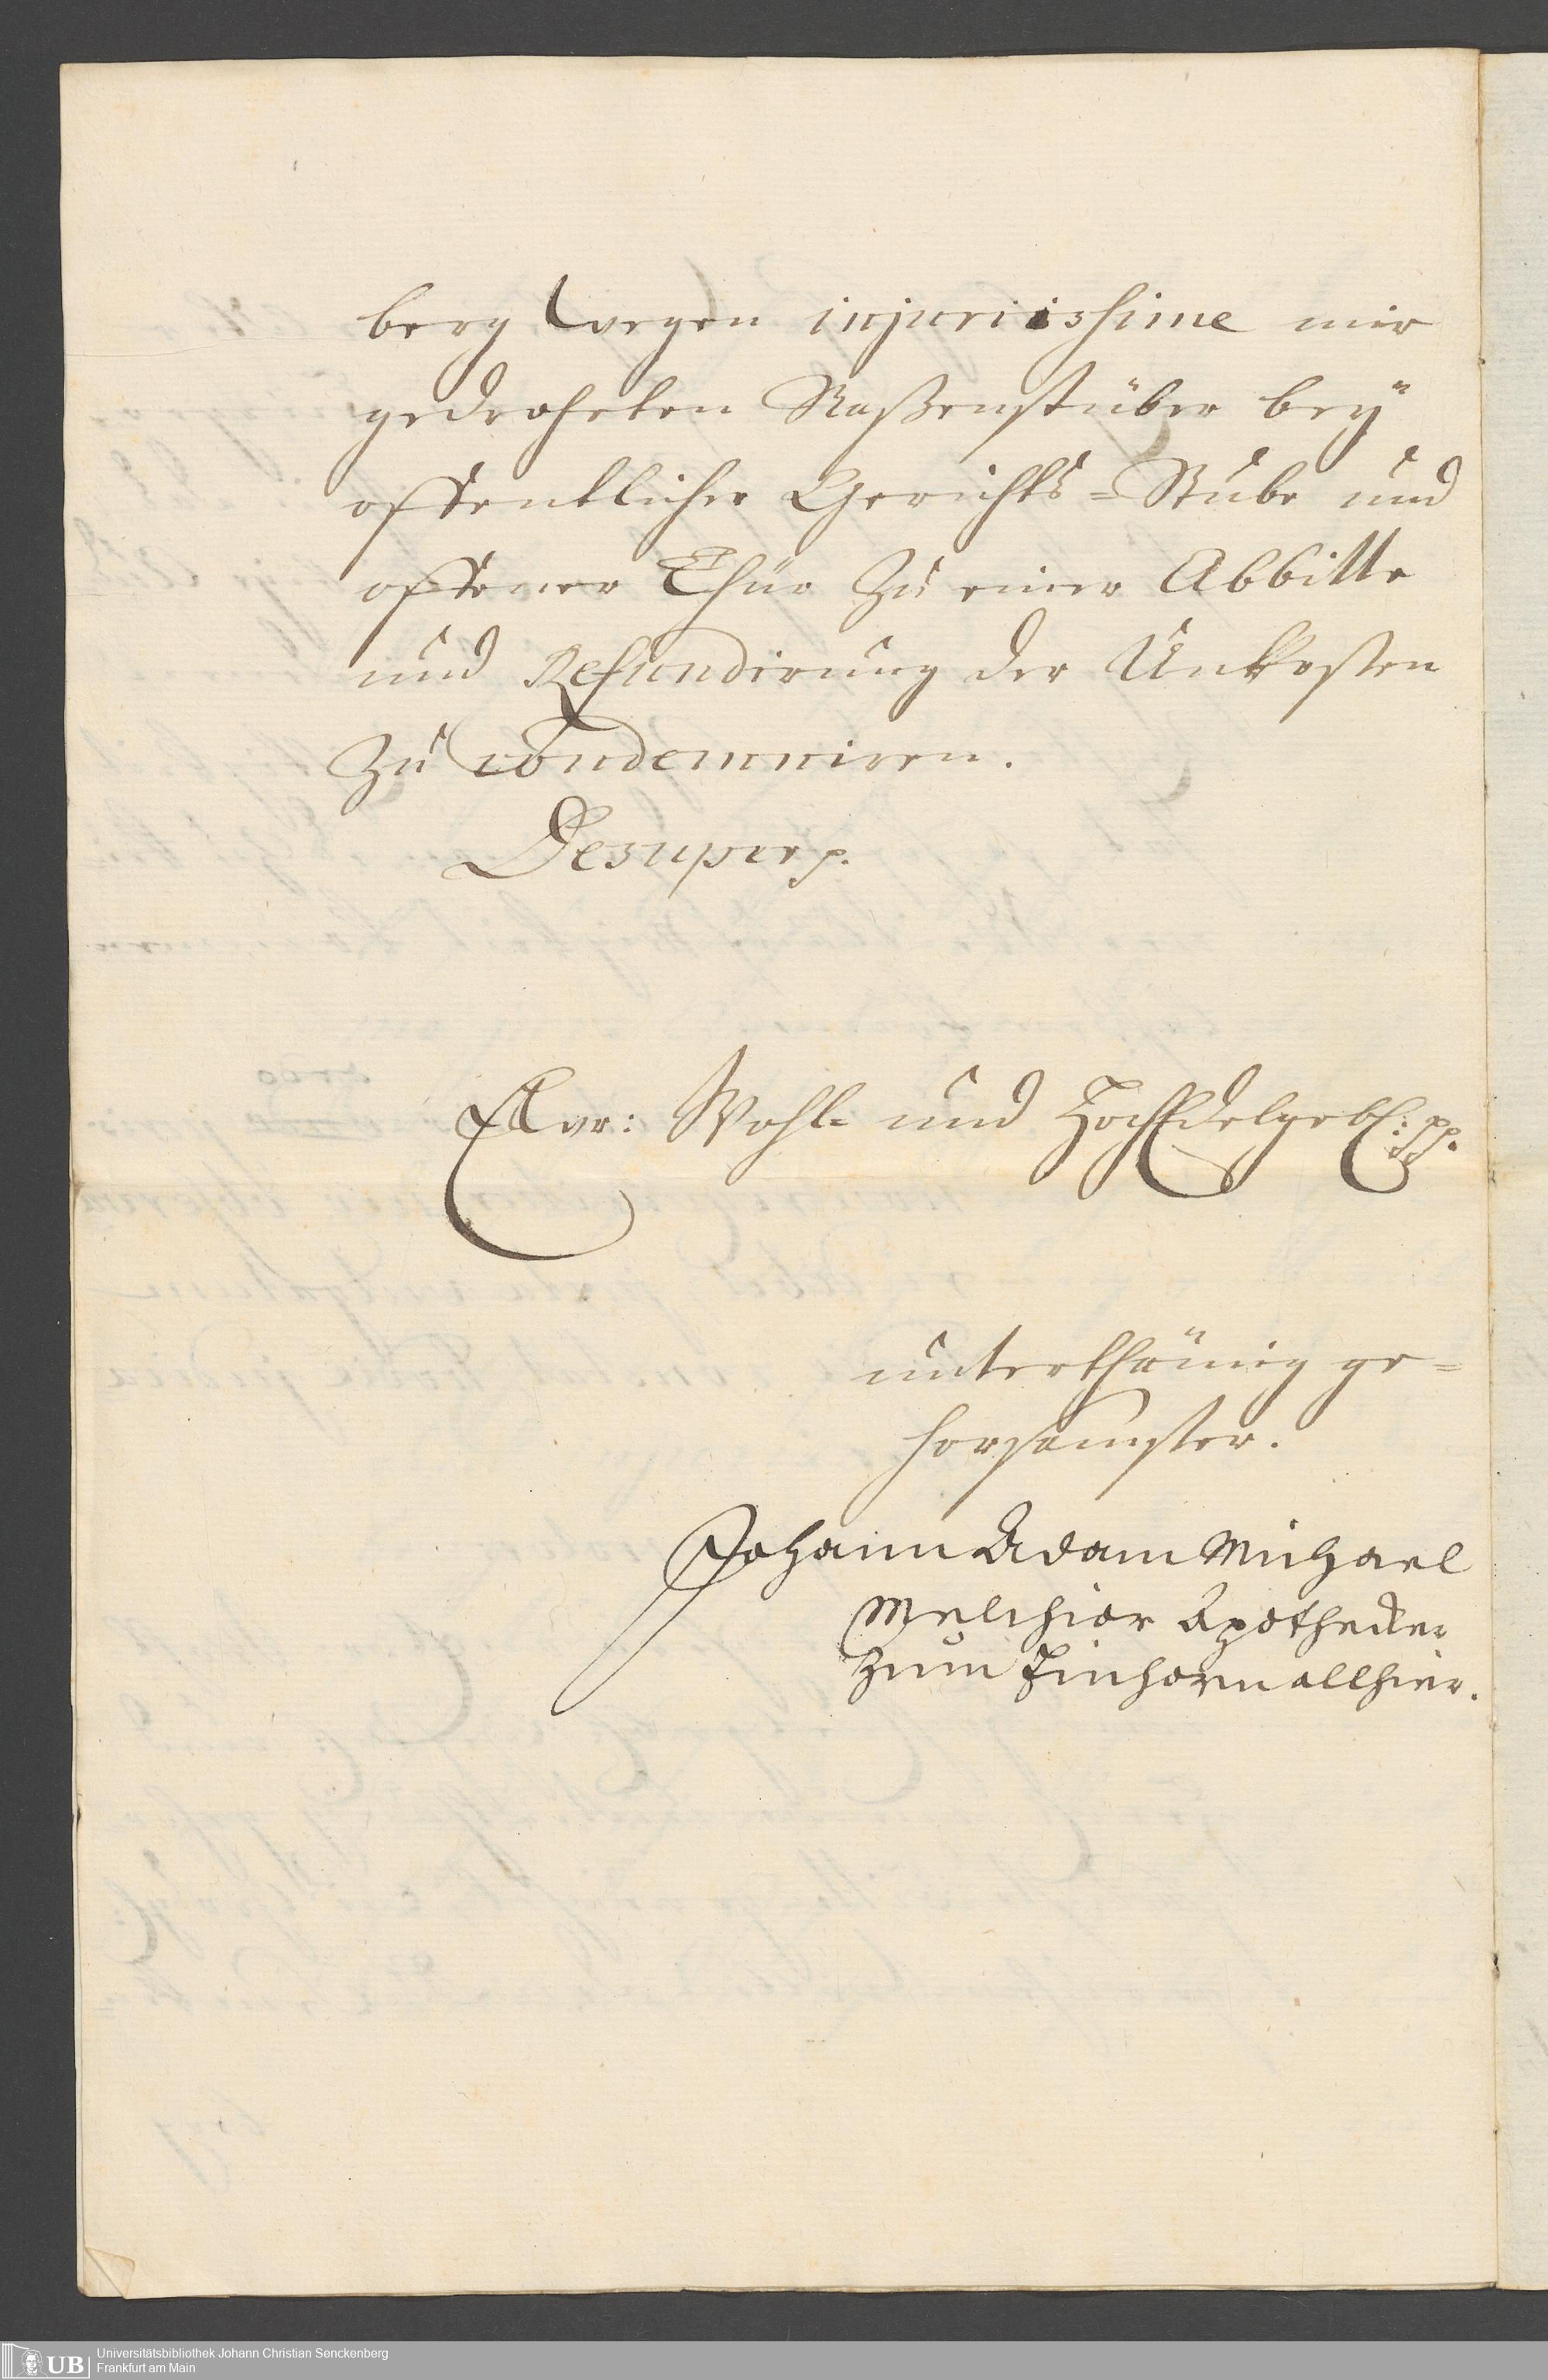 berg wegen injuriissime mir
gedroheten Naßenstüber bey
offentlicher Gerichts=Stube und
offener Thür zu einer Abbitte
und Refundirung der Unkosten
zu condemniren.
Desuper p.
Ewr: Wohl= und HochEdelgebl: pp.
unterthänig ge=
horsamster.
Johann Adam Michael
Melchior Apothecker
zum Einhorn allhier.
UB
Universitätsbibliothek Johann Christian Senckenberg
Frankfurt am Main